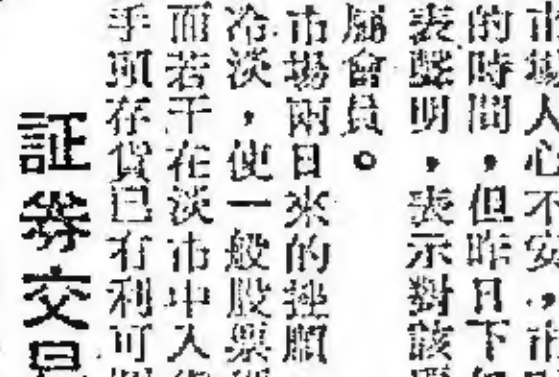 市場人心不安，市
的時間，但昨日下
表聲明，表示對該
會員。
市場兩日來的挫順
冷淡，使一般股票
而若干在淡市中入
手頭存貨已有利可
証券交易